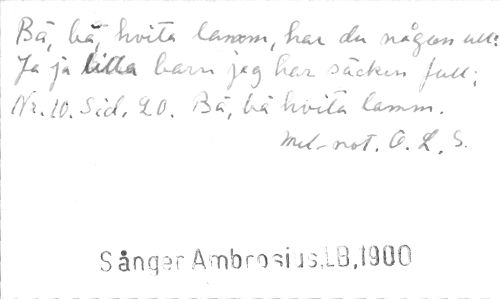 Bä, bä, hvita lamm, har du någon ull?
Ja ja lilla barn jag har säcken full;
Nr. 10. Sid. 20. Bä, bä hvita lamm.
Mel-not. O. L. S.
Sånger Ambrosius,LB,1900